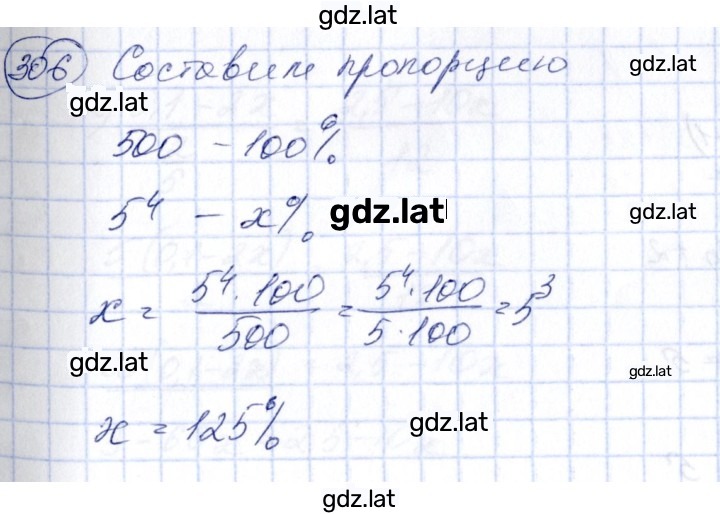 gdz.lat
306 Составим пропорцию
gdz.lat
gdz.lat
500 – 100%
5⁴ – x%
gdz.lat
gdz.lat
x = 5⁴·100/500 = 5⁴·100/5·100 = 5³
gdz.lat
gdz.lat
x = 125%
gdz.lat
gdz.lat